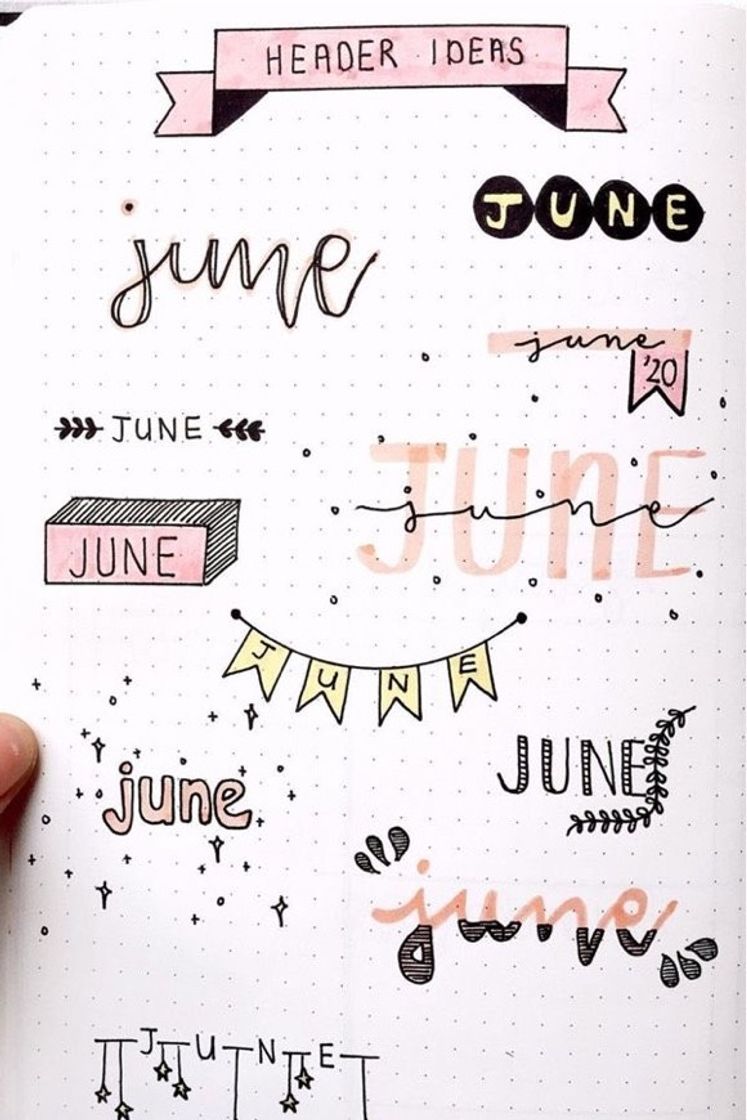 HEADER IDEAS
june
JUNE
june
'20
JUNE
JUNE
june
JUNE
JUNE
june
JUNE
june
JUNE